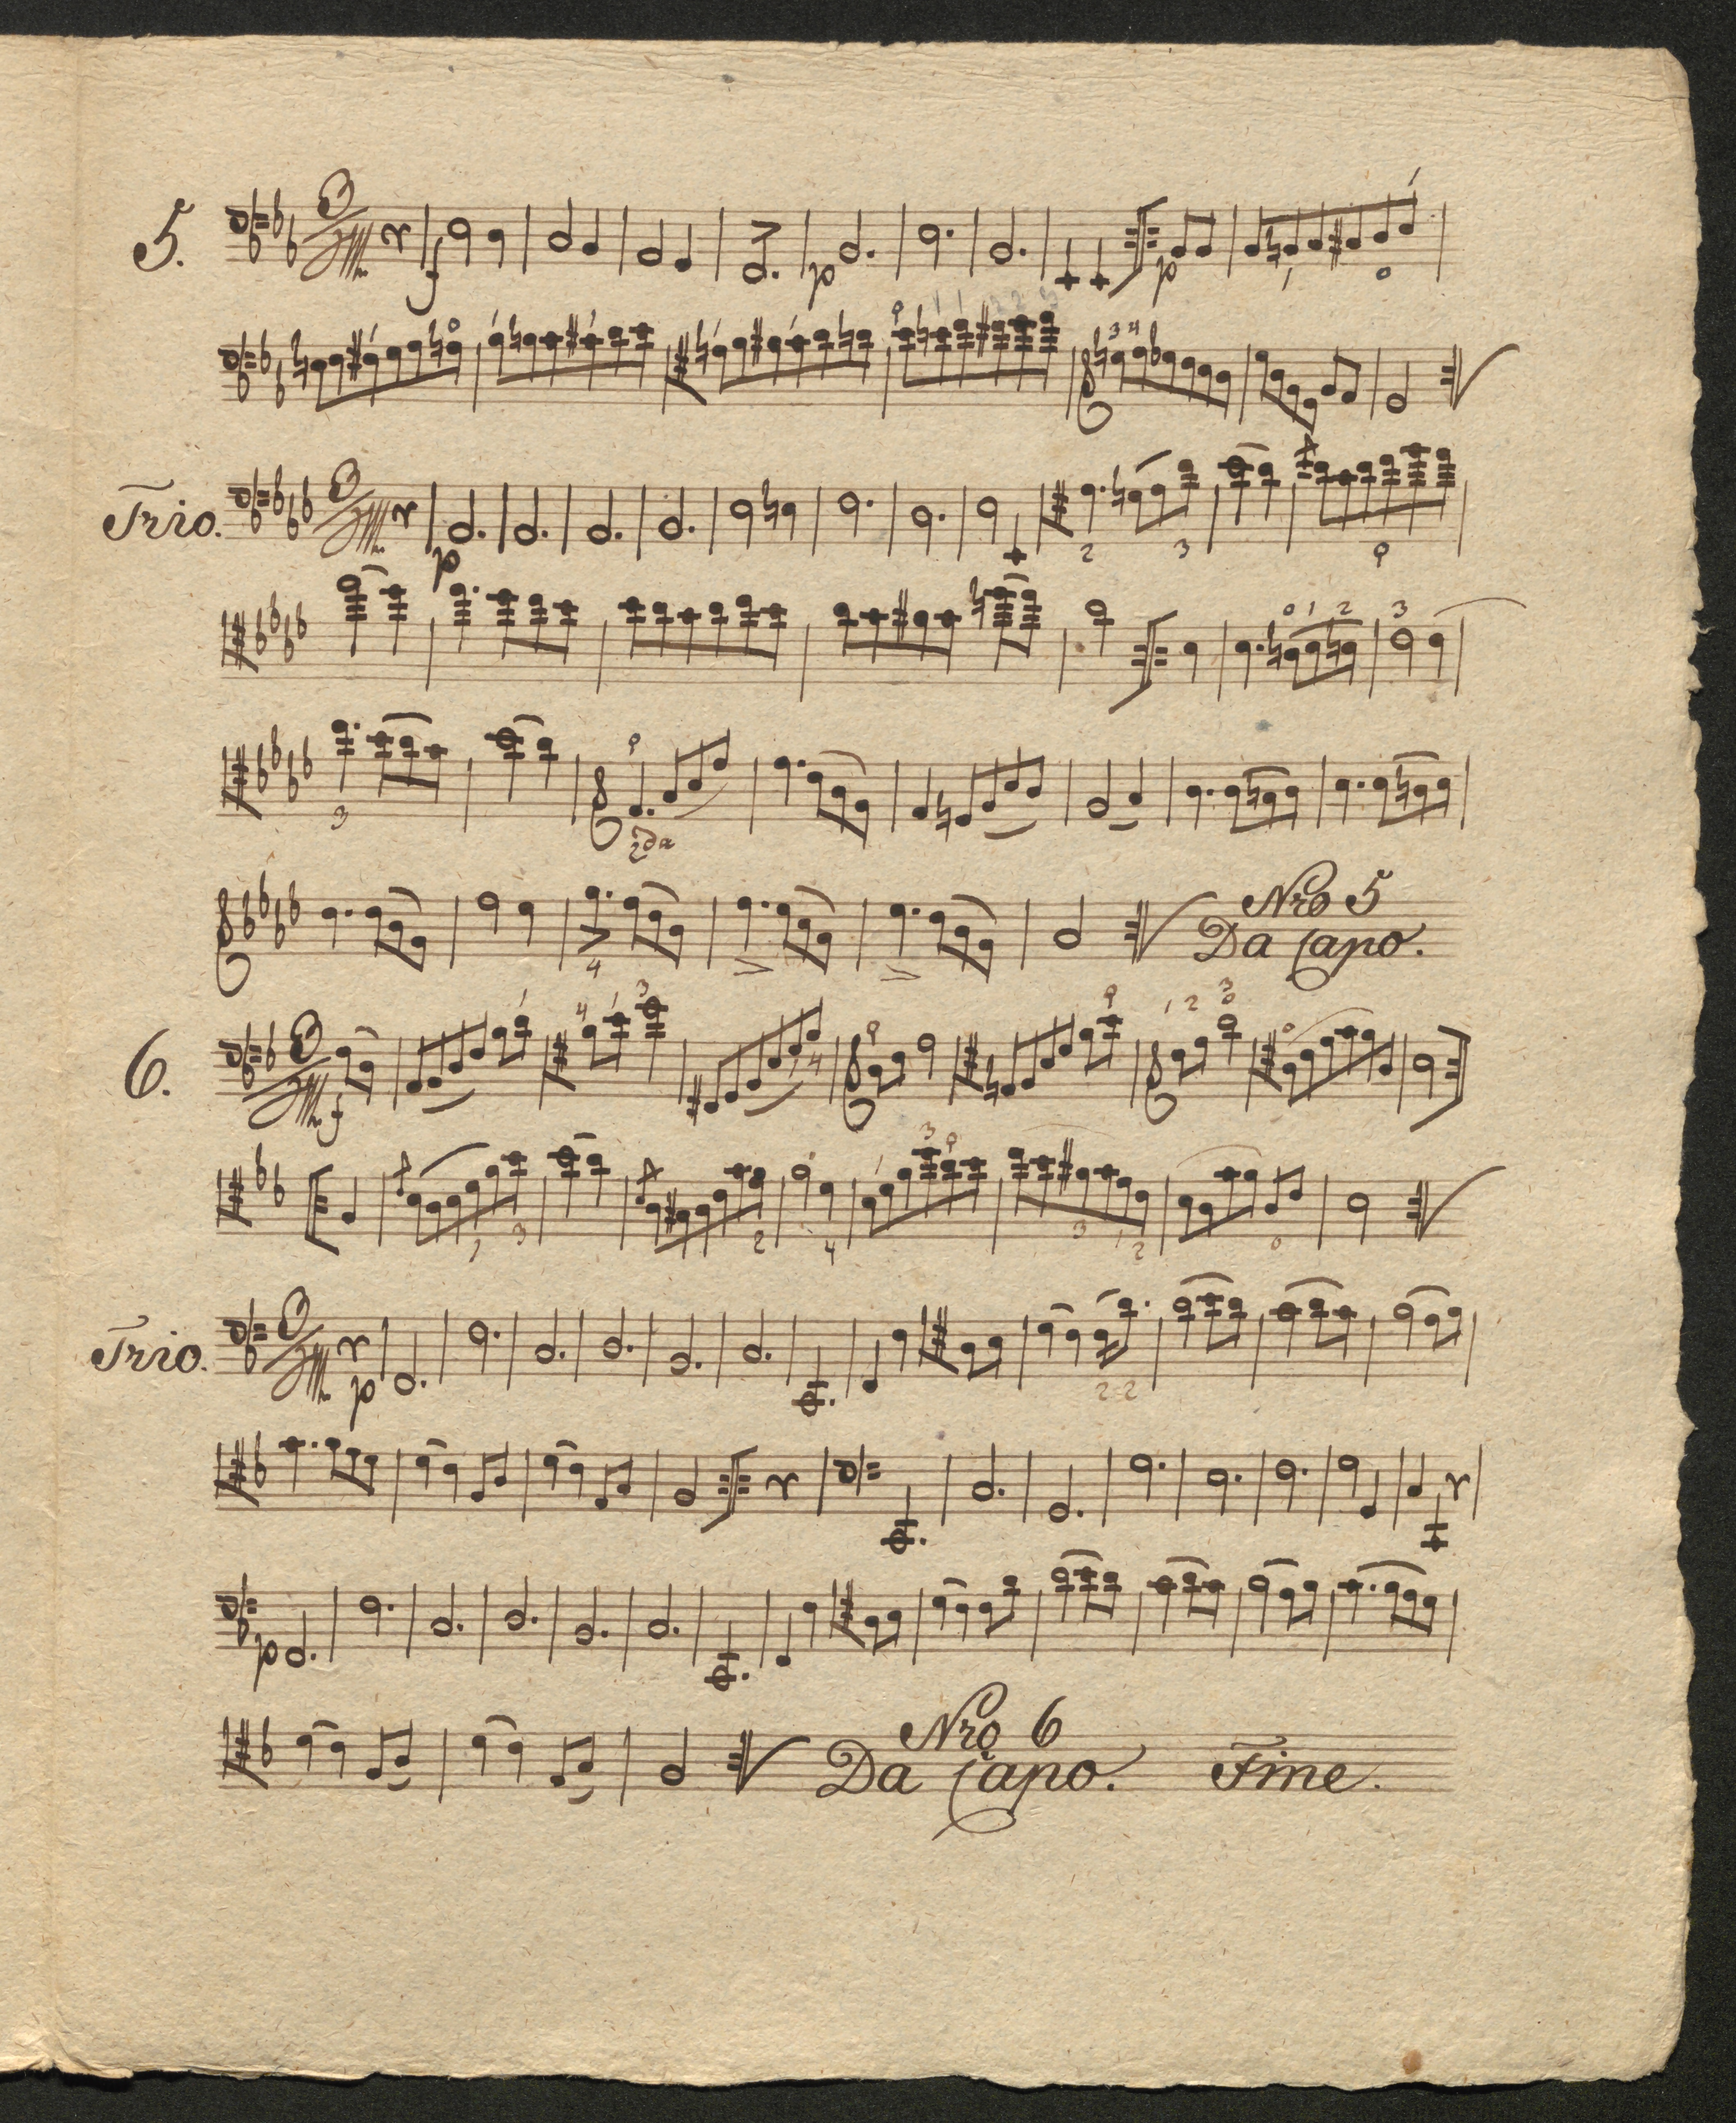 5.
f p p
Trio.
p
2da
Nro 5
Da Capo.
6.
f
Trio.
p
p
Nro 6
Da Capo. Fine.